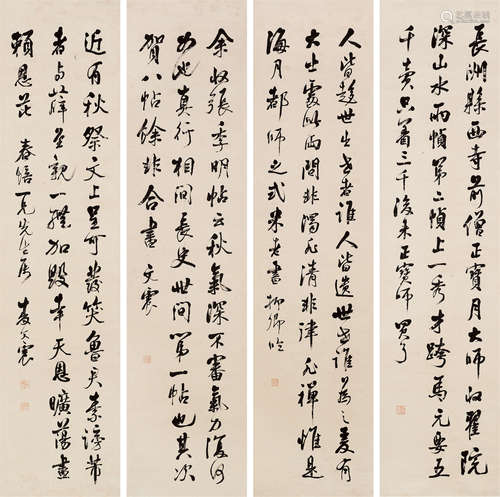 長洲縣西寺前僧正寶月大師收翟院
深山水兩幀第二幀上一秀才跨馬元要五
千賣只著三千後未正寶師買了
人皆趍世出世者誰人皆遺世世誰為之爰有
大士處此兩間非濁非清非律非禪惟是
海月都師之式米老書
余收張季明帖云秋氣深不審氣力復何
如也真行相間長史世間第一帖也其次
賀八帖餘非合書文震
近有秋祭文上呈可發笑魯君素謗芾
者与薛至親一旌加毀幸天恩曠蕩盡
賴恩芘春一兄先生屬文震